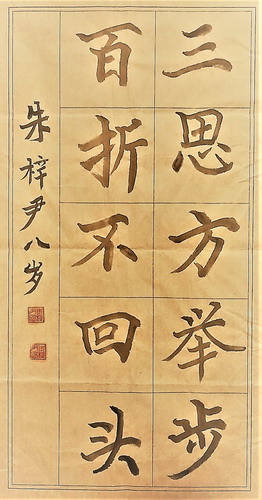 三思方举步
百折不回头
朱梓尹八岁